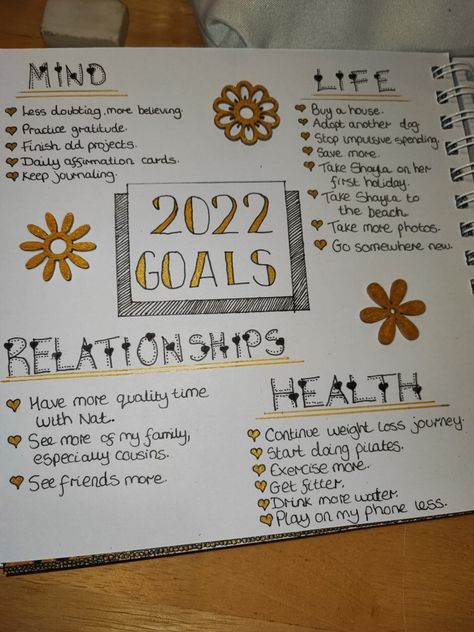 MIND
Less doubting, more believing.
Practice gratitude.
Finish old projects.
Daily affirmation cards.
Keep journaling.
LIFE
Buy a house.
Adopt another dog.
Stop impulsive spending.
Save more.
Take Shayla on her
first holiday.
Take Shayla to
the beach.
Take more photos.
Go somewhere new.
2022
GOALS
RELATIONSHIPS
Have more quality time
with Nat.
See more of my family,
especially cousins.
See friends more.
HEALTH
Continue weight loss journey.
Start doing pilates.
Exercise more.
Get fitter.
Drink more water.
Play on my phone less.